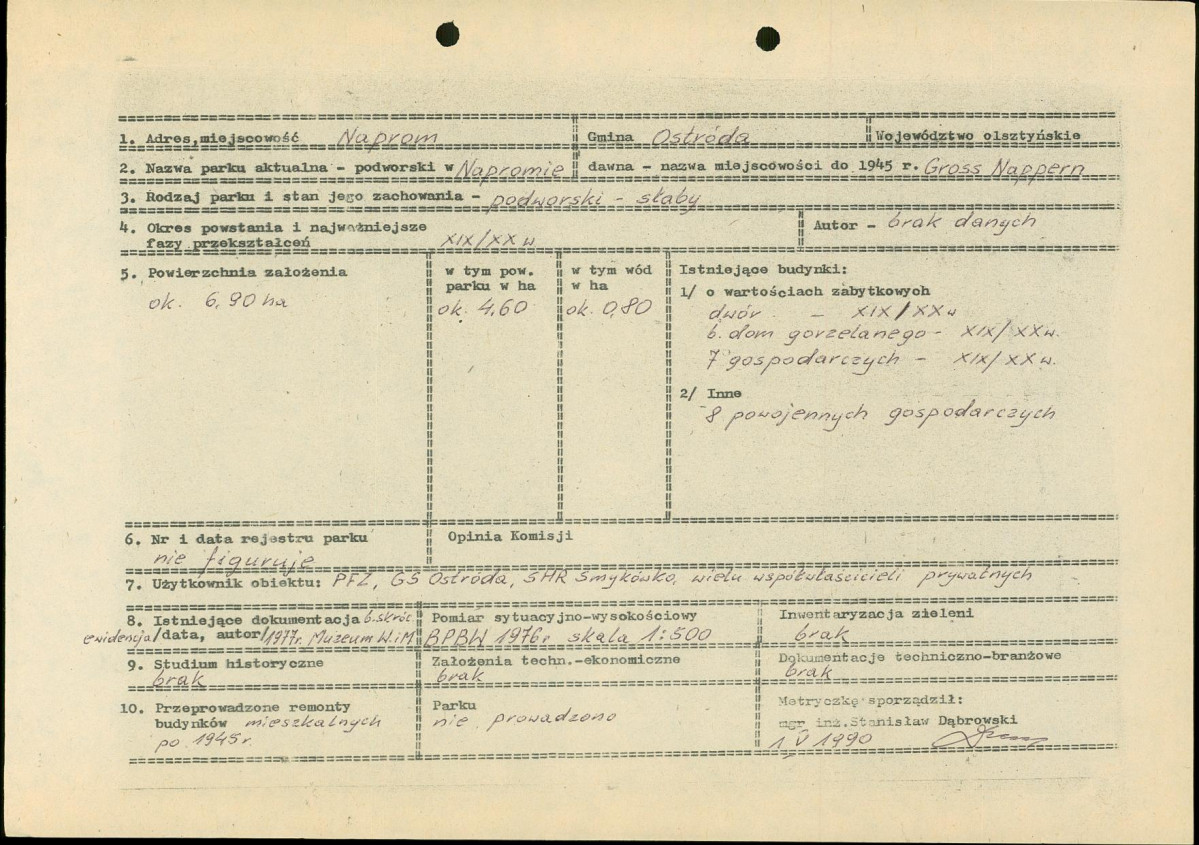 1. Adres,miejscowość Naprom Gmina Ostróda Województwo olsztyńskie
2. Nazwa parku aktualna - podworski w Napromie dawna - nazwa miejscowości do 1945 r. Gross Nappern
3. Rodzaj parku i stan jego zachowania - podworski - słaby
4. Okres powstania i najważniejsze
fazy przekształceń XIX/XX w
Autor - brak danych
5. Powierzchnia założenia
ok. 6,90 ha
w tym pow.
parku w ha
ok. 4,60
w tym wód
w ha
ok. 0,80
Istniejące budynki:
1/ o wartościach zabytkowych
dwór - XIX/XXw
b. dom gorzelanego - XIX/XXw.
7 gospodarczych - XIX/XXw.
2/ Inne
8 powojennych gospodarczych
6. Nr i data rejestru parku
nie figuruje
Opinia Komisji
7. Użytkownik obiektu: PFZ, GS Ostróda, SHR Smykówko, wielu współwłaścicieli prywatnych
8. Istniejące dokumentacja b. skróc.
ewidencja/data, autor/1977r. Muzeum W.iM
Pomiar sytuacyjno-wysokościowy
BPBW 1976r skala 1:500
Inwentaryzacja zieleni
brak
9. Studium historyczne
brak
Założenia techn.-ekonomiczne
brak
Dokumentacje techniczno-branżowe
brak
10. Przeprowadzone remonty
budynków mieszkalnych
po 1945r.
Parku
nie prowadzono
Metryczkę sporządził:
mgr inż.Stanisław Dąbrowski
1 V 1990